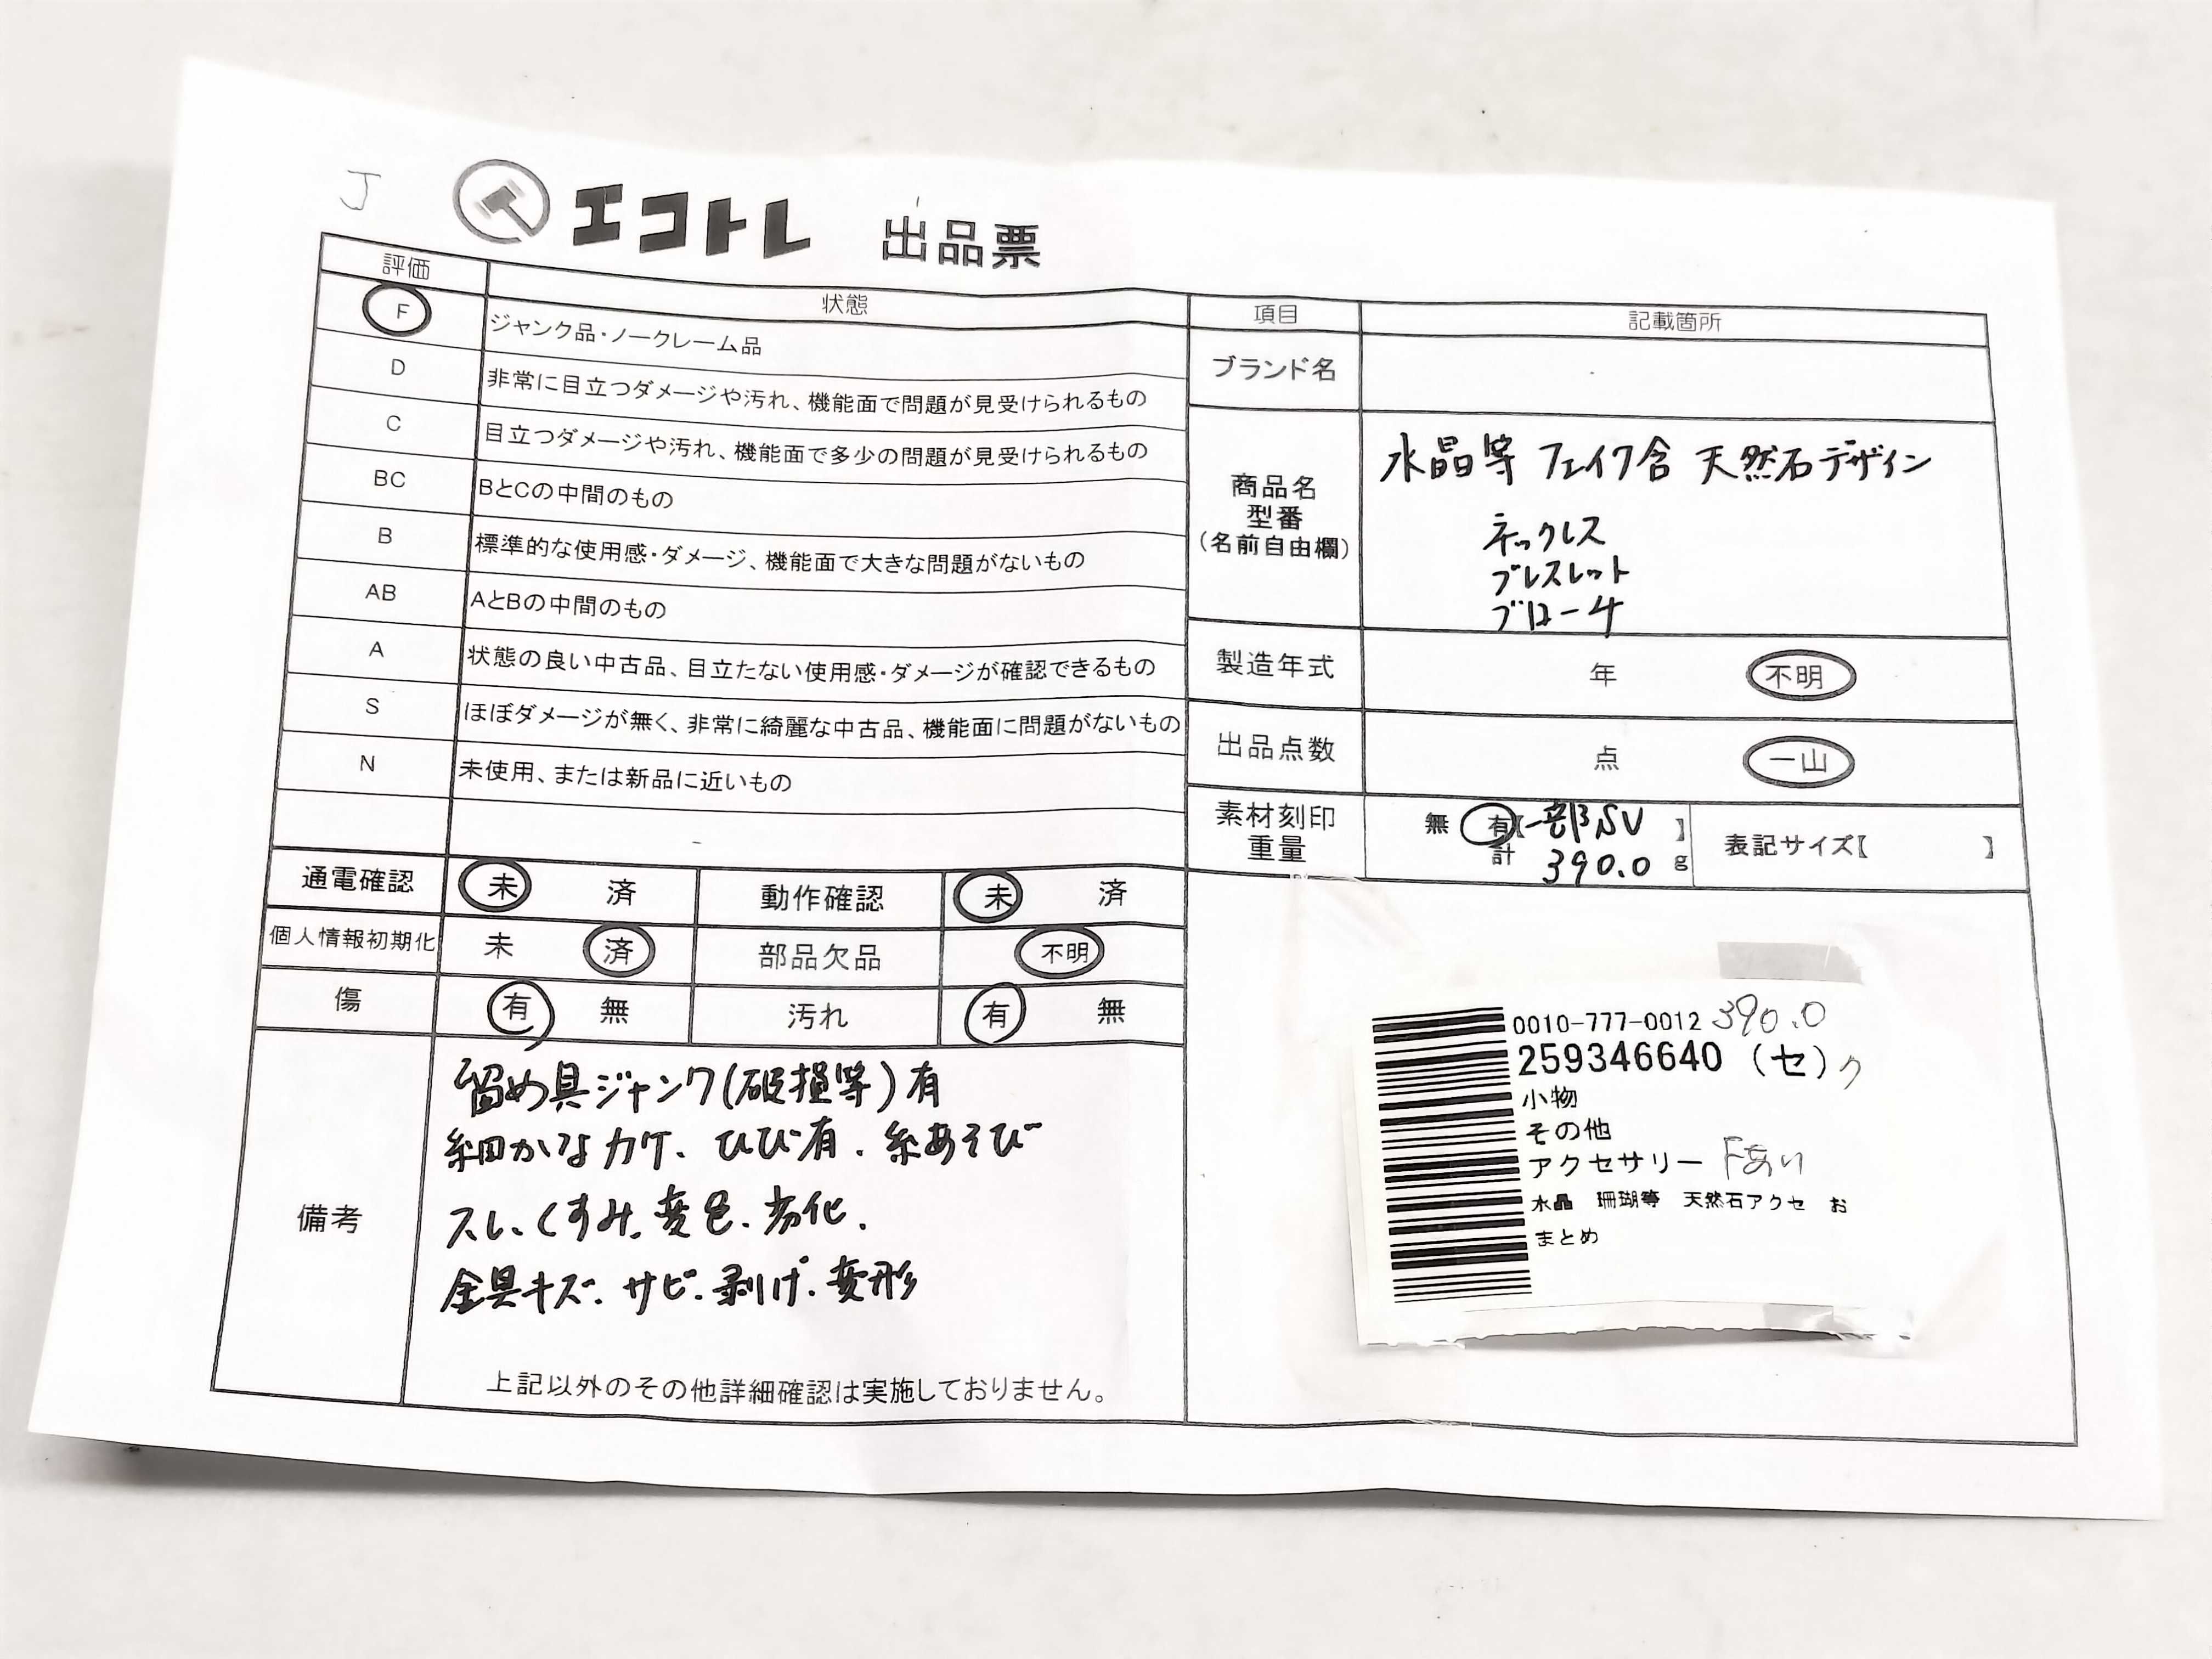 J
エコトレ 出品票
評価 状態
F ジャンク品・ノークレーム品
D 非常に目立つダメージや汚れ、機能面で問題が見受けられるもの
C 目立つダメージや汚れ、機能面で多少の問題が見受けられるもの
BC BとCの中間のもの
B 標準的な使用感・ダメージ、機能面で大きな問題がないもの
AB AとBの中間のもの
A 状態の良い中古品、目立たない使用感・ダメージが確認できるもの
S ほぼダメージが無く、非常に綺麗な中古品、機能面に問題がないもの
N 未使用、または新品に近いもの
通電確認 未 済 動作確認 未 済
個人情報初期化 未 済 部品欠品 不明
傷 有 無 汚れ 有 無
備考
留め具ジャンク(破損等)有
細かなカケ、ひび有、糸あそび
スレ、くすみ、変色、劣化、
金具キズ、サビ、剥げ、変形
上記以外のその他詳細確認は実施しておりません。
項目 記載箇所
ブランド名
商品名
型番
(名前自由欄)
水晶等 フェイク含 天然石デザイン
ネックレス
ブレスレット
ブローチ
製造年式 年 不明
出品点数 点 一山
素材刻印
重量
無 有【一部SV】
計 390.0 g
表記サイズ【 】
0010-777-0012 390.0
259346640 (セ) ク
小物
その他
アクセサリー Fあり
水晶 珊瑚等 天然石アクセ お
まとめ